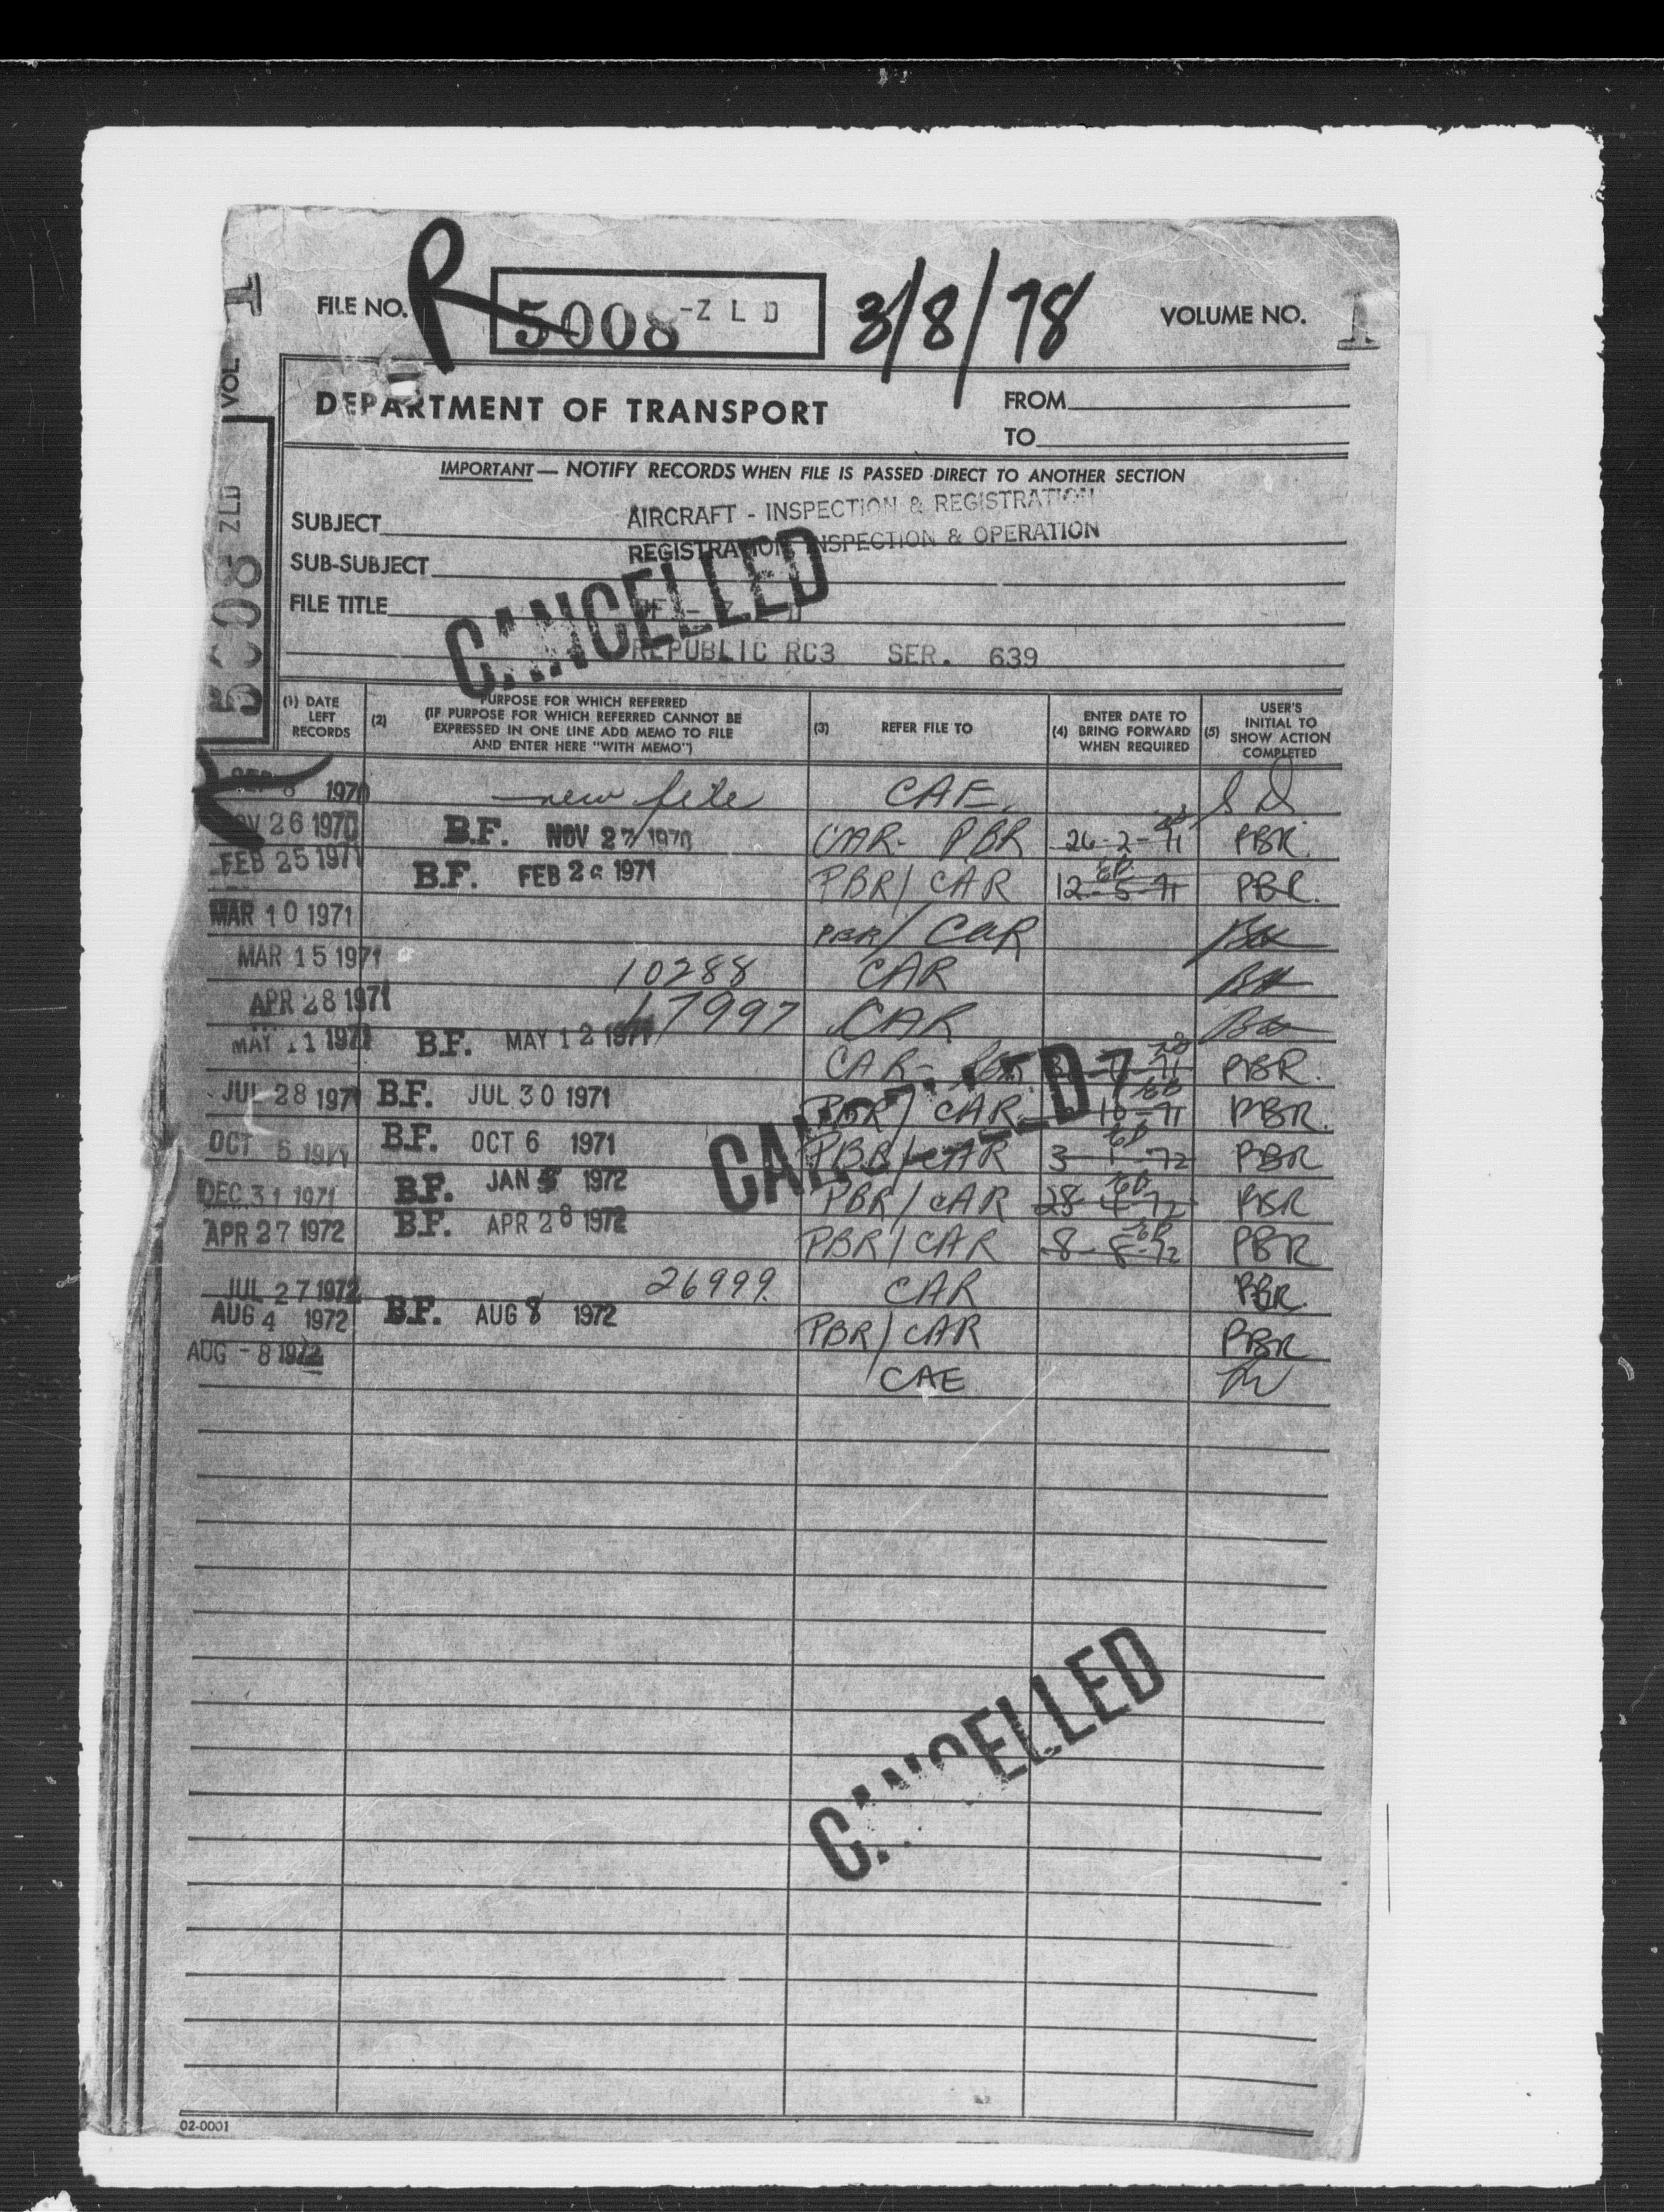 FILE NO. R 5008-ZLD 3/8/78 VOLUME NO. 1
VOL 1
5008 ZLD
DEPARTMENT OF TRANSPORT
FROM
TO
IMPORTANT — NOTIFY RECORDS WHEN FILE IS PASSED DIRECT TO ANOTHER SECTION
SUBJECT AIRCRAFT - INSPECTION & REGISTRATION
SUB-SUBJECT REGISTRATION INSPECTION & OPERATION
FILE TITLE
CANCELLED
REPUBLIC RC3 SER. 639
(1) DATE LEFT RECORDS
(2) PURPOSE FOR WHICH REFERRED
(IF PURPOSE FOR WHICH REFERRED CANNOT BE
EXPRESSED IN ONE LINE ADD MEMO TO FILE
AND ENTER HERE "WITH MEMO")
(3) REFER FILE TO
(4) ENTER DATE TO BRING FORWARD WHEN REQUIRED
(5) USER'S INITIAL TO SHOW ACTION COMPLETED
8 1970 new file CAE
NOV 26 1970 B.F. NOV 27 1970 CAR- PBR 26-2-71 PBR.
FEB 25 1971 B.F. FEB 26 1971 PBR/CAR 12-5-71 PBR.
MAR 10 1971 PBR/CAR
MAR 15 1971 10288 CAR
APR 28 1971 17997 CAR
MAY 11 1971 B.F. MAY 12 1971 CAR- 71 PBR.
JUL 28 1971 B.F. JUL 30 1971 PBR/CAR 10-71 PBR.
OCT 5 1971 B.F. OCT 6 1971 PBR/CAR 3-1-72 PBR
CANCELLED
DEC 31 1971 B.F. JAN 5 1972 PBR/CAR 28-4-72 PBR
APR 27 1972 B.F. APR 28 1972 PBR/CAR 8-8-72 PBR
JUL 27 1972 26999. CAR PBR
AUG 4 1972 B.F. AUG 8 1972 PBR/CAR PBR
AUG - 8 1972 CAE
CANCELLED
02-0001